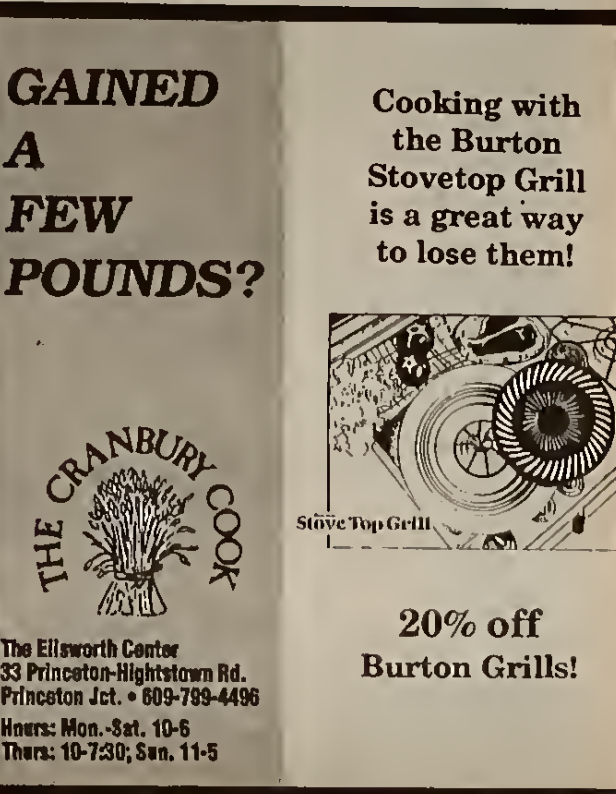 GAINED
A
FEW
POUNDS?
THE CRANBURY COOK
The Ellsworth Center
33 Princeton-Hightstown Rd.
Princeton Jct. • 609-799-4496
Hours: Mon.-Sat. 10-6
Thurs: 10-7:30; Sun. 11-5
Cooking with
the Burton
Stovetop Grill
is a great way
to lose them!
Stove Top Grill
20% off
Burton Grills!